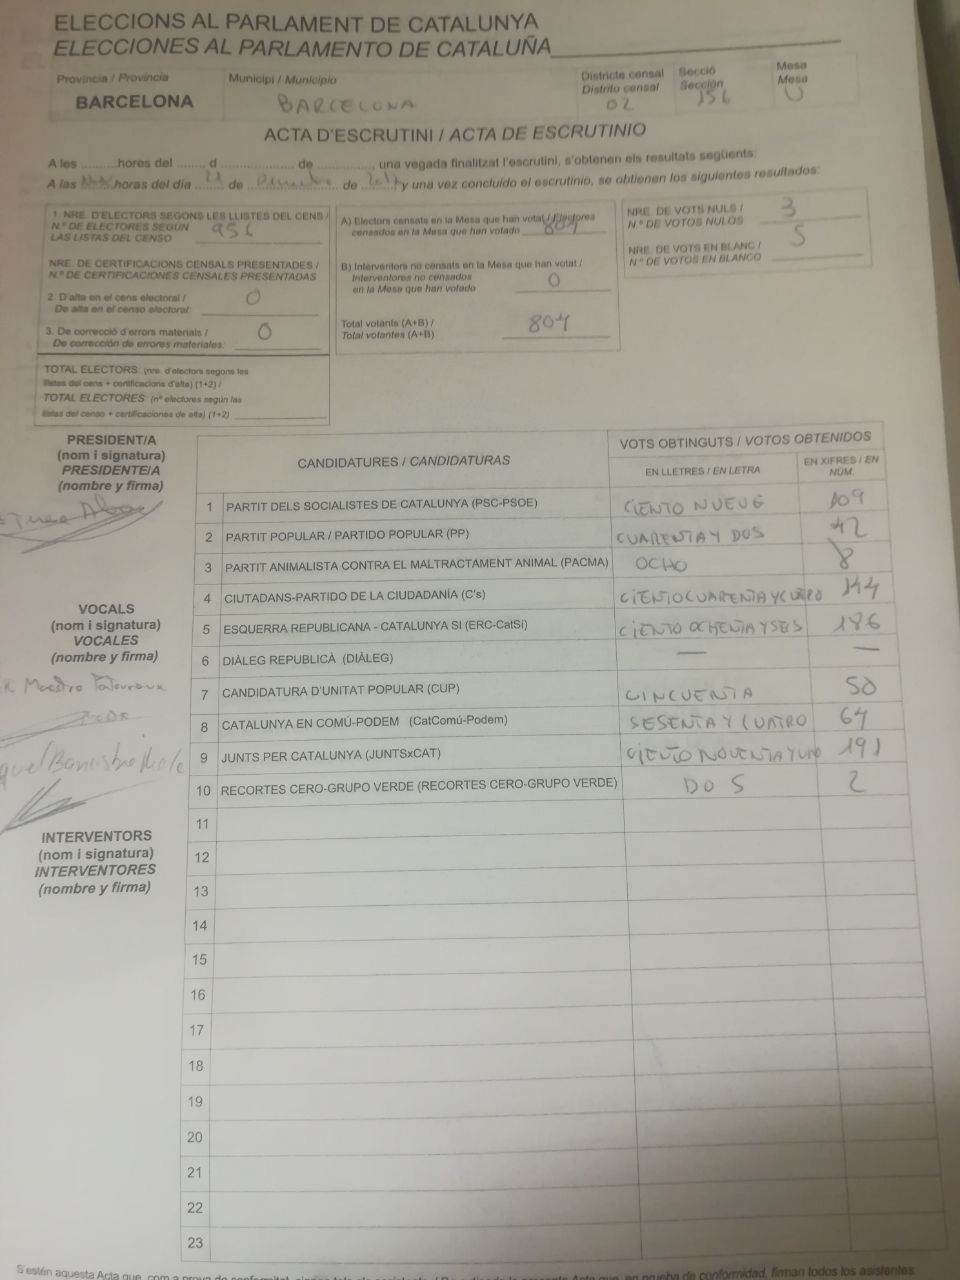 ELECCIONS AL PARLAMENT DE CATALUNYA
ELECCIONES AL PARLAMENTO DE CATALUÑA
Província / Provincia
BARCELONA
Municipi / Municipio
BARCELONA
Districte censal
Distrito censal
02
Secció
Sección
156
Mesa
Mesa
U
ACTA D'ESCRUTINI / ACTA DE ESCRUTINIO
A les ..........hores del ........ d .................... de ..............., una vegada finalitzat l'escrutini, s'obtenen els resultats següents:
A las horas del día 21 de de y una vez concluído el escrutinio, se obtienen los siguientes resultados:
1. NRE. D'ELECTORS SEGONS LES LLISTES DEL CENS /
N.º DE ELECTORES SEGÚN
LAS LISTAS DEL CENSO
956
NRE. DE CERTIFICACIONS CENSALS PRESENTADES /
N.º DE CERTIFICACIONES CENSALES PRESENTADAS
2. D'alta en el cens electoral /
De alta en el censo electoral:
0
3. De correcció d'errors materials /
De corrección de errores materiales:
0
TOTAL ELECTORS: (nre. d'electors segons les
llistes del cens + certificacions d'alta) (1+2) /
TOTAL ELECTORES (nº electores según las
listas del censo + certificaciones de alta) (1+2)
A) Electors censats en la Mesa que han votat / Electores
censados en la Mesa que han votado
804
B) Interventors no censats en la Mesa que han votat /
Interventores no censados
en la Mesa que han votado
0
Total votants (A+B) /
Total votantes (A+B)
804
NRE. DE VOTS NULS /
N.º DE VOTOS NULOS
3
NRE. DE VOTS EN BLANC /
N.º DE VOTOS EN BLANCO
5
PRESIDENT/A
(nom i signatura)
PRESIDENTE/A
(nombre y firma)
VOCALS
(nom i signatura)
VOCALES
(nombre y firma)
Maestro
INTERVENTORS
(nom i signatura)
INTERVENTORES
(nombre y firma)
CANDIDATURES / CANDIDATURAS
VOTS OBTINGUTS / VOTOS OBTENIDOS
EN LLETRES / EN LETRA
EN XIFRES / EN
NÚM.
1 PARTIT DELS SOCIALISTES DE CATALUNYA (PSC-PSOE) CIENTO NUEVE 109
2 PARTIT POPULAR / PARTIDO POPULAR (PP) CUARENTA Y DOS 42
3 PARTIT ANIMALISTA CONTRA EL MALTRACTAMENT ANIMAL (PACMA) OCHO 8
4 CIUTADANS-PARTIDO DE LA CIUDADANÍA (C's) CIENTO CUARENTA Y CUATRO 144
5 ESQUERRA REPUBLICANA - CATALUNYA SI (ERC-CatSí) CIENTO OCHENTA Y SEIS 186
6 DIÀLEG REPUBLICÀ (DIÀLEG) — —
7 CANDIDATURA D'UNITAT POPULAR (CUP) CINCUENTA 50
8 CATALUNYA EN COMÚ-PODEM (CatComú-Podem) SESENTA Y CUATRO 64
9 JUNTS PER CATALUNYA (JUNTSxCAT) CIENTO NOVENTA Y UNO 191
10 RECORTES CERO-GRUPO VERDE (RECORTES CERO-GRUPO VERDE) DOS 2
11
12
13
14
15
16
17
18
19
20
21
22
23
S'estén aquesta Acta que, com a prova de conformitat, firman todos los asistentes.